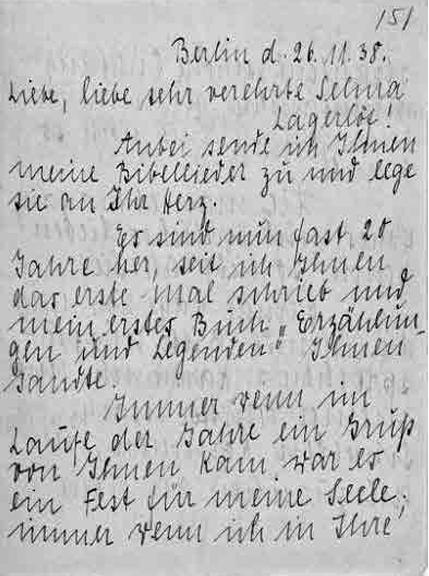 151
Berlin d. 26.11.38.
Liebe, liebe sehr verehrte Selma
Lagerlöf!
Anbei sende ich Ihnen
meine Bibellieder zu und lege
sie an Ihr Herz.
Es sind nun fast 20
Jahre her, seit ich Ihnen
das erste Mal schrieb und
mein erstes Buch „Erzählun-
gen und Legenden“ Ihnen
sandte.
Immer wenn im
Laufe der Jahre ein Gruß
von Ihnen kam war es
ein Fest für meine Seele;
immer wenn ich in Ihre